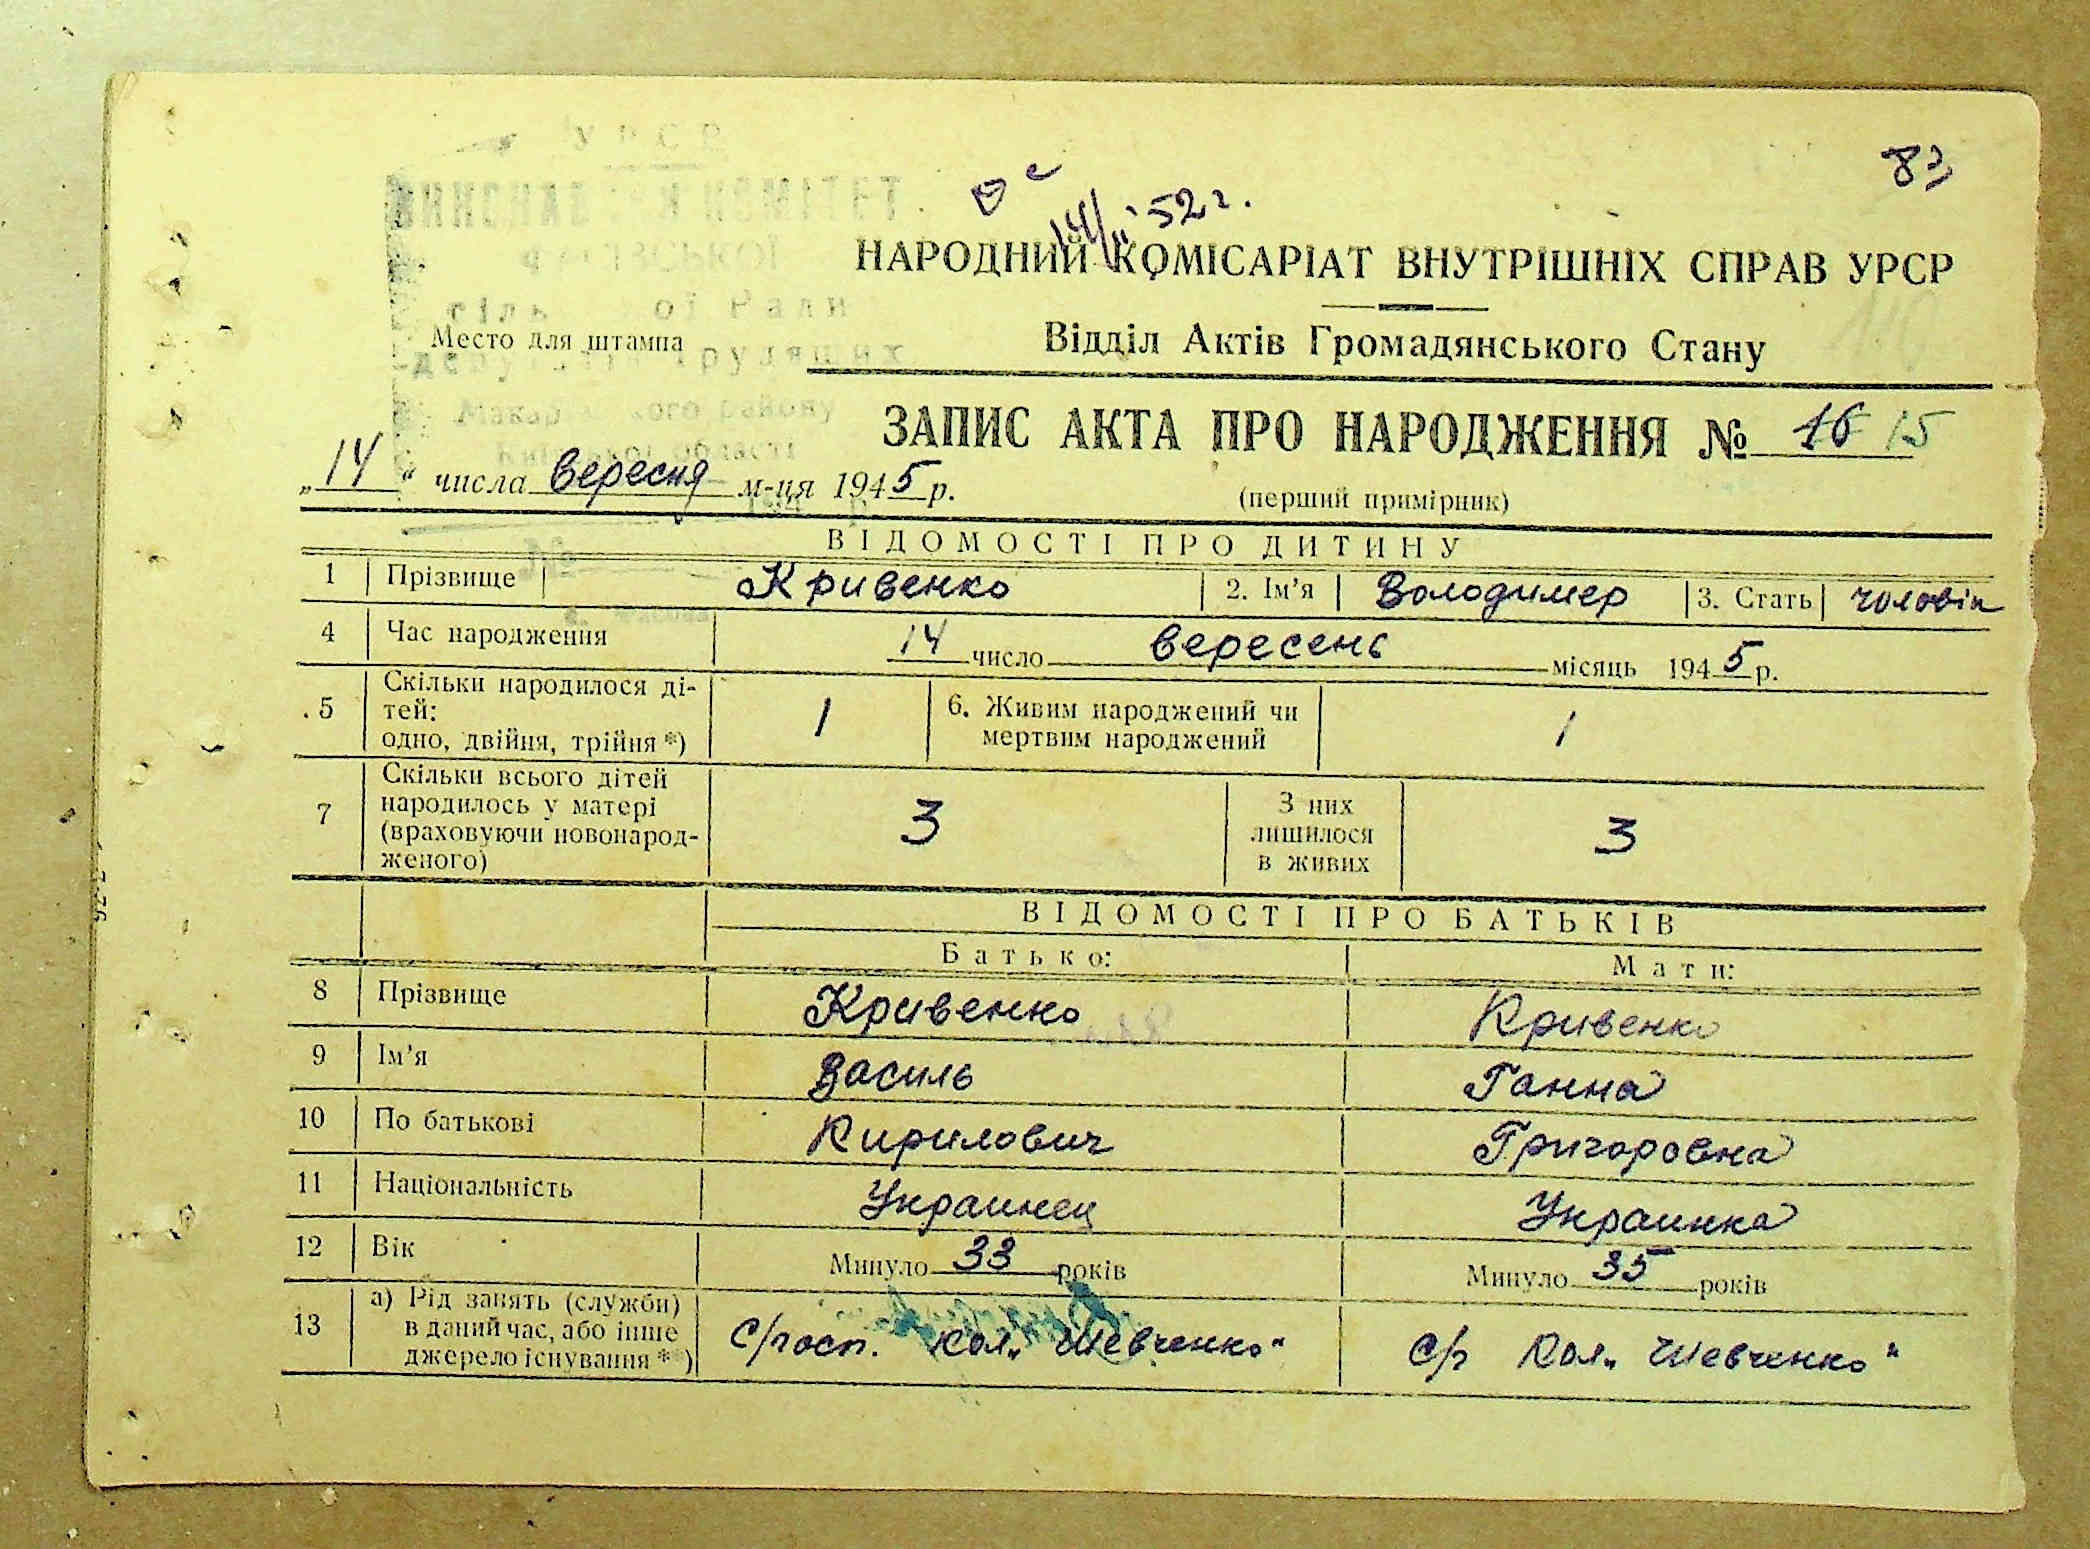 83
14/II 52 г.
УРСР
ВИКОНАВЧИЙ КОМІТЕТ
Ради
трудящих
Макарівського району
Київської області
Место для штампа
НАРОДНИЙ КОМІСАРІАТ ВНУТРІШНІХ СПРАВ УРСР
Відділ Актів Громадянського Стану
ЗАПИС АКТА ПРО НАРОДЖЕННЯ № 16 15
„14“ числа вересня м-ця 1945 р.
(перший примірник)
ВІДОМОСТІ ПРО ДИТИНУ
1 Прізвище Кривенко 2. Ім’я Володимер 3. Стать чоловік
4 Час народження 14 число вересень місяць 1945 р.
5 Скільки народилося ді-
тей:
одно, двійня, трійня *) 1
6. Живим народжений чи
мертвим народжений 1
7 Скільки всього дітей
народилось у матері
(враховуючи новонарод-
женого) 3
З них
лишилося
в живих 3
ВІДОМОСТІ ПРО БАТЬКІВ
Батько: Мати:
8 Прізвище Кривенко Кривенко
9 Ім’я Василь Ганна
10 По батькові Кирилович Григоровна
11 Національність Украинец Украинка
12 Вік Минуло 33 років Минуло 35 років
13 а) Рід занять (служби)
в даний час, або інше
джерело існування *)
С/госп. Кол. „Шевченко“ с/г Кол. „Шевченко“